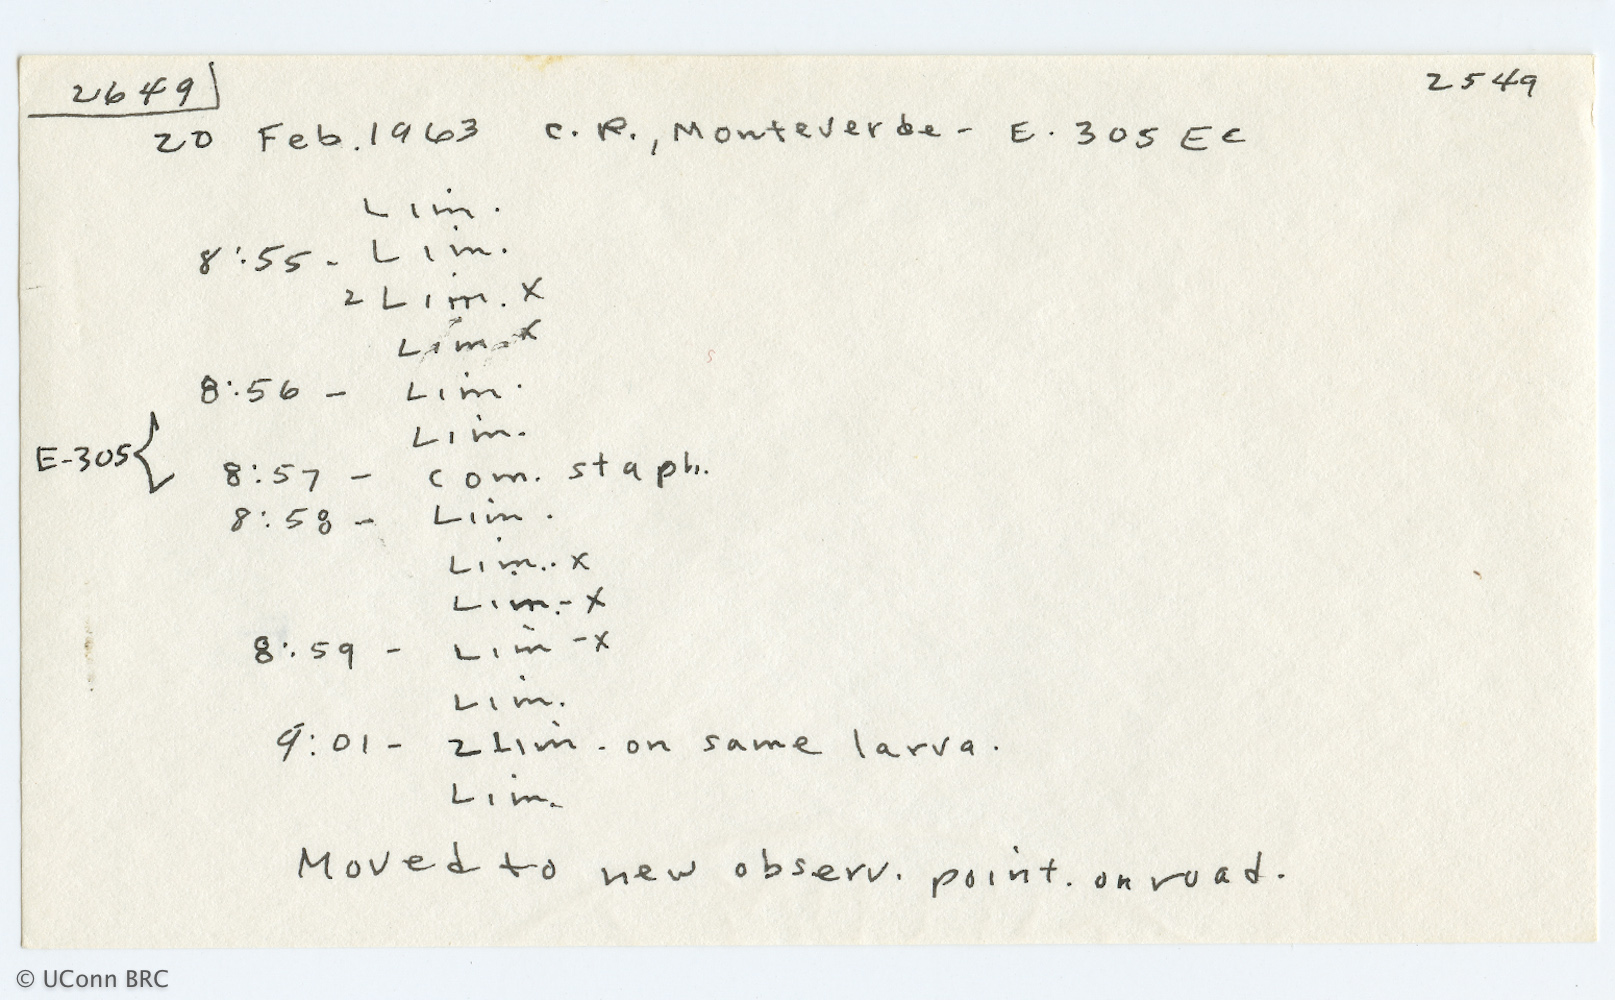 2649 2549
20 Feb. 1963 C.R., Monteverde - E. 305 EC
Lim.
8:55 - Lim.
2 Lim. X
Lim. X
8:56 - Lim.
Lim.
E-305 { 8:57 - com. staph.
8:58 - Lim.
Lim.. X
Lim. - X
8:59 - Lim - X
Lim.
9:01 - 2 Lim. on same larva.
Lim.
Moved to new observ. point. on road.
© UConn BRC